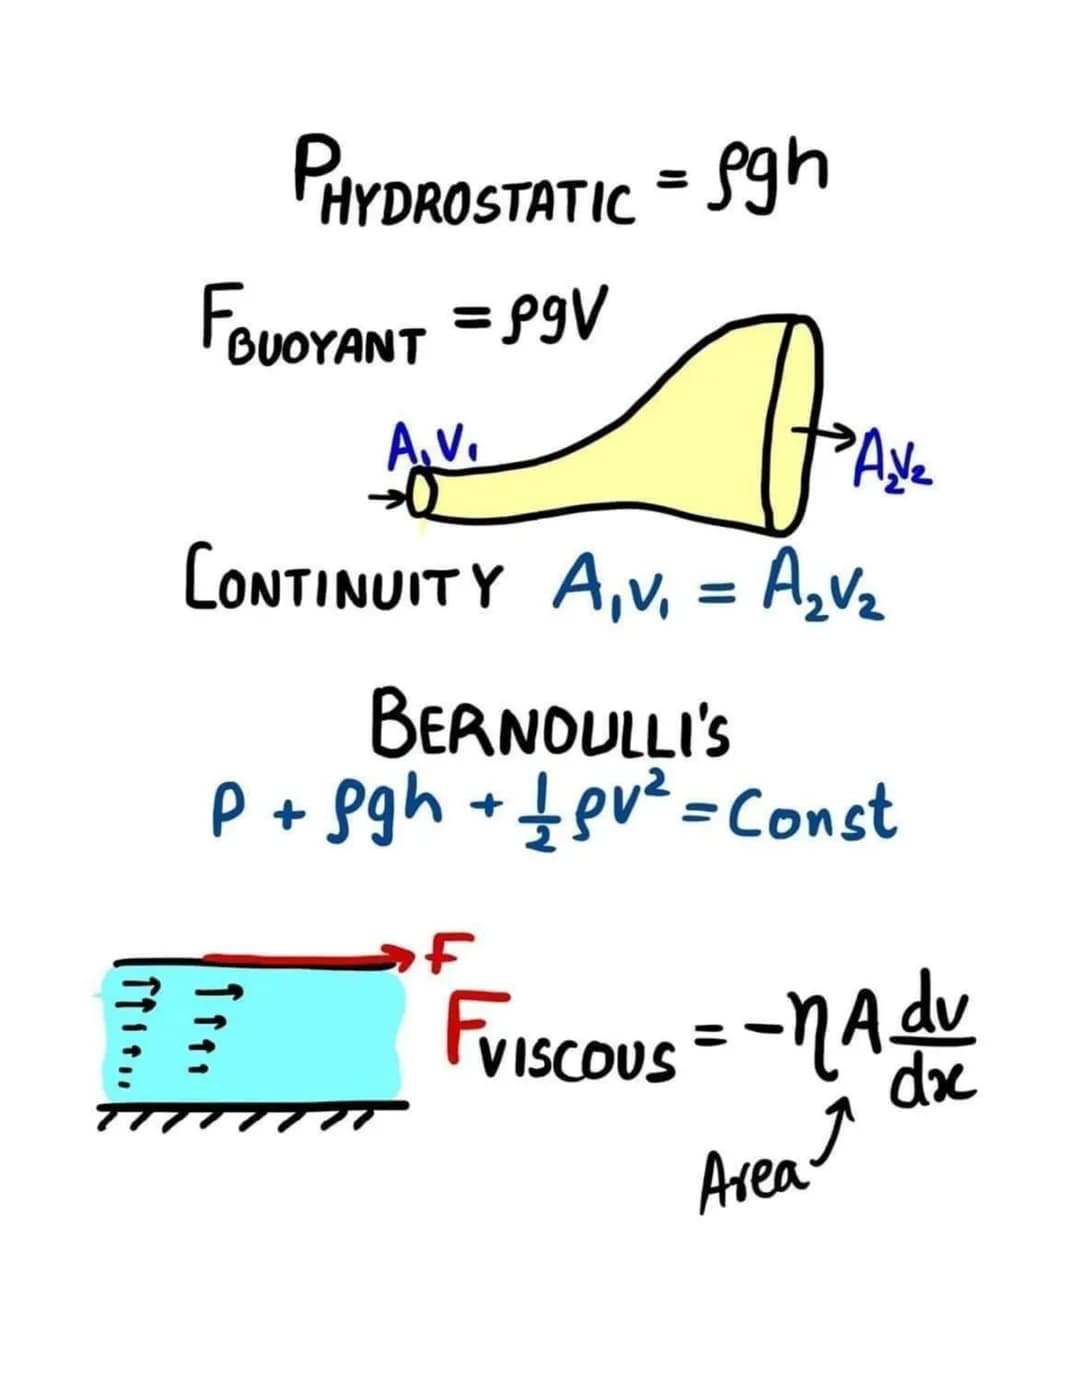 P_HYDROSTATIC = ρgh
F_BUOYANT = ρgV
A₁V₁
A₂V₂
CONTINUITY A₁V₁ = A₂V₂
BERNOULLI'S
P + ρgh + ½ρv² = Const
F
F_VISCOUS = -ηA dv/dx
Area